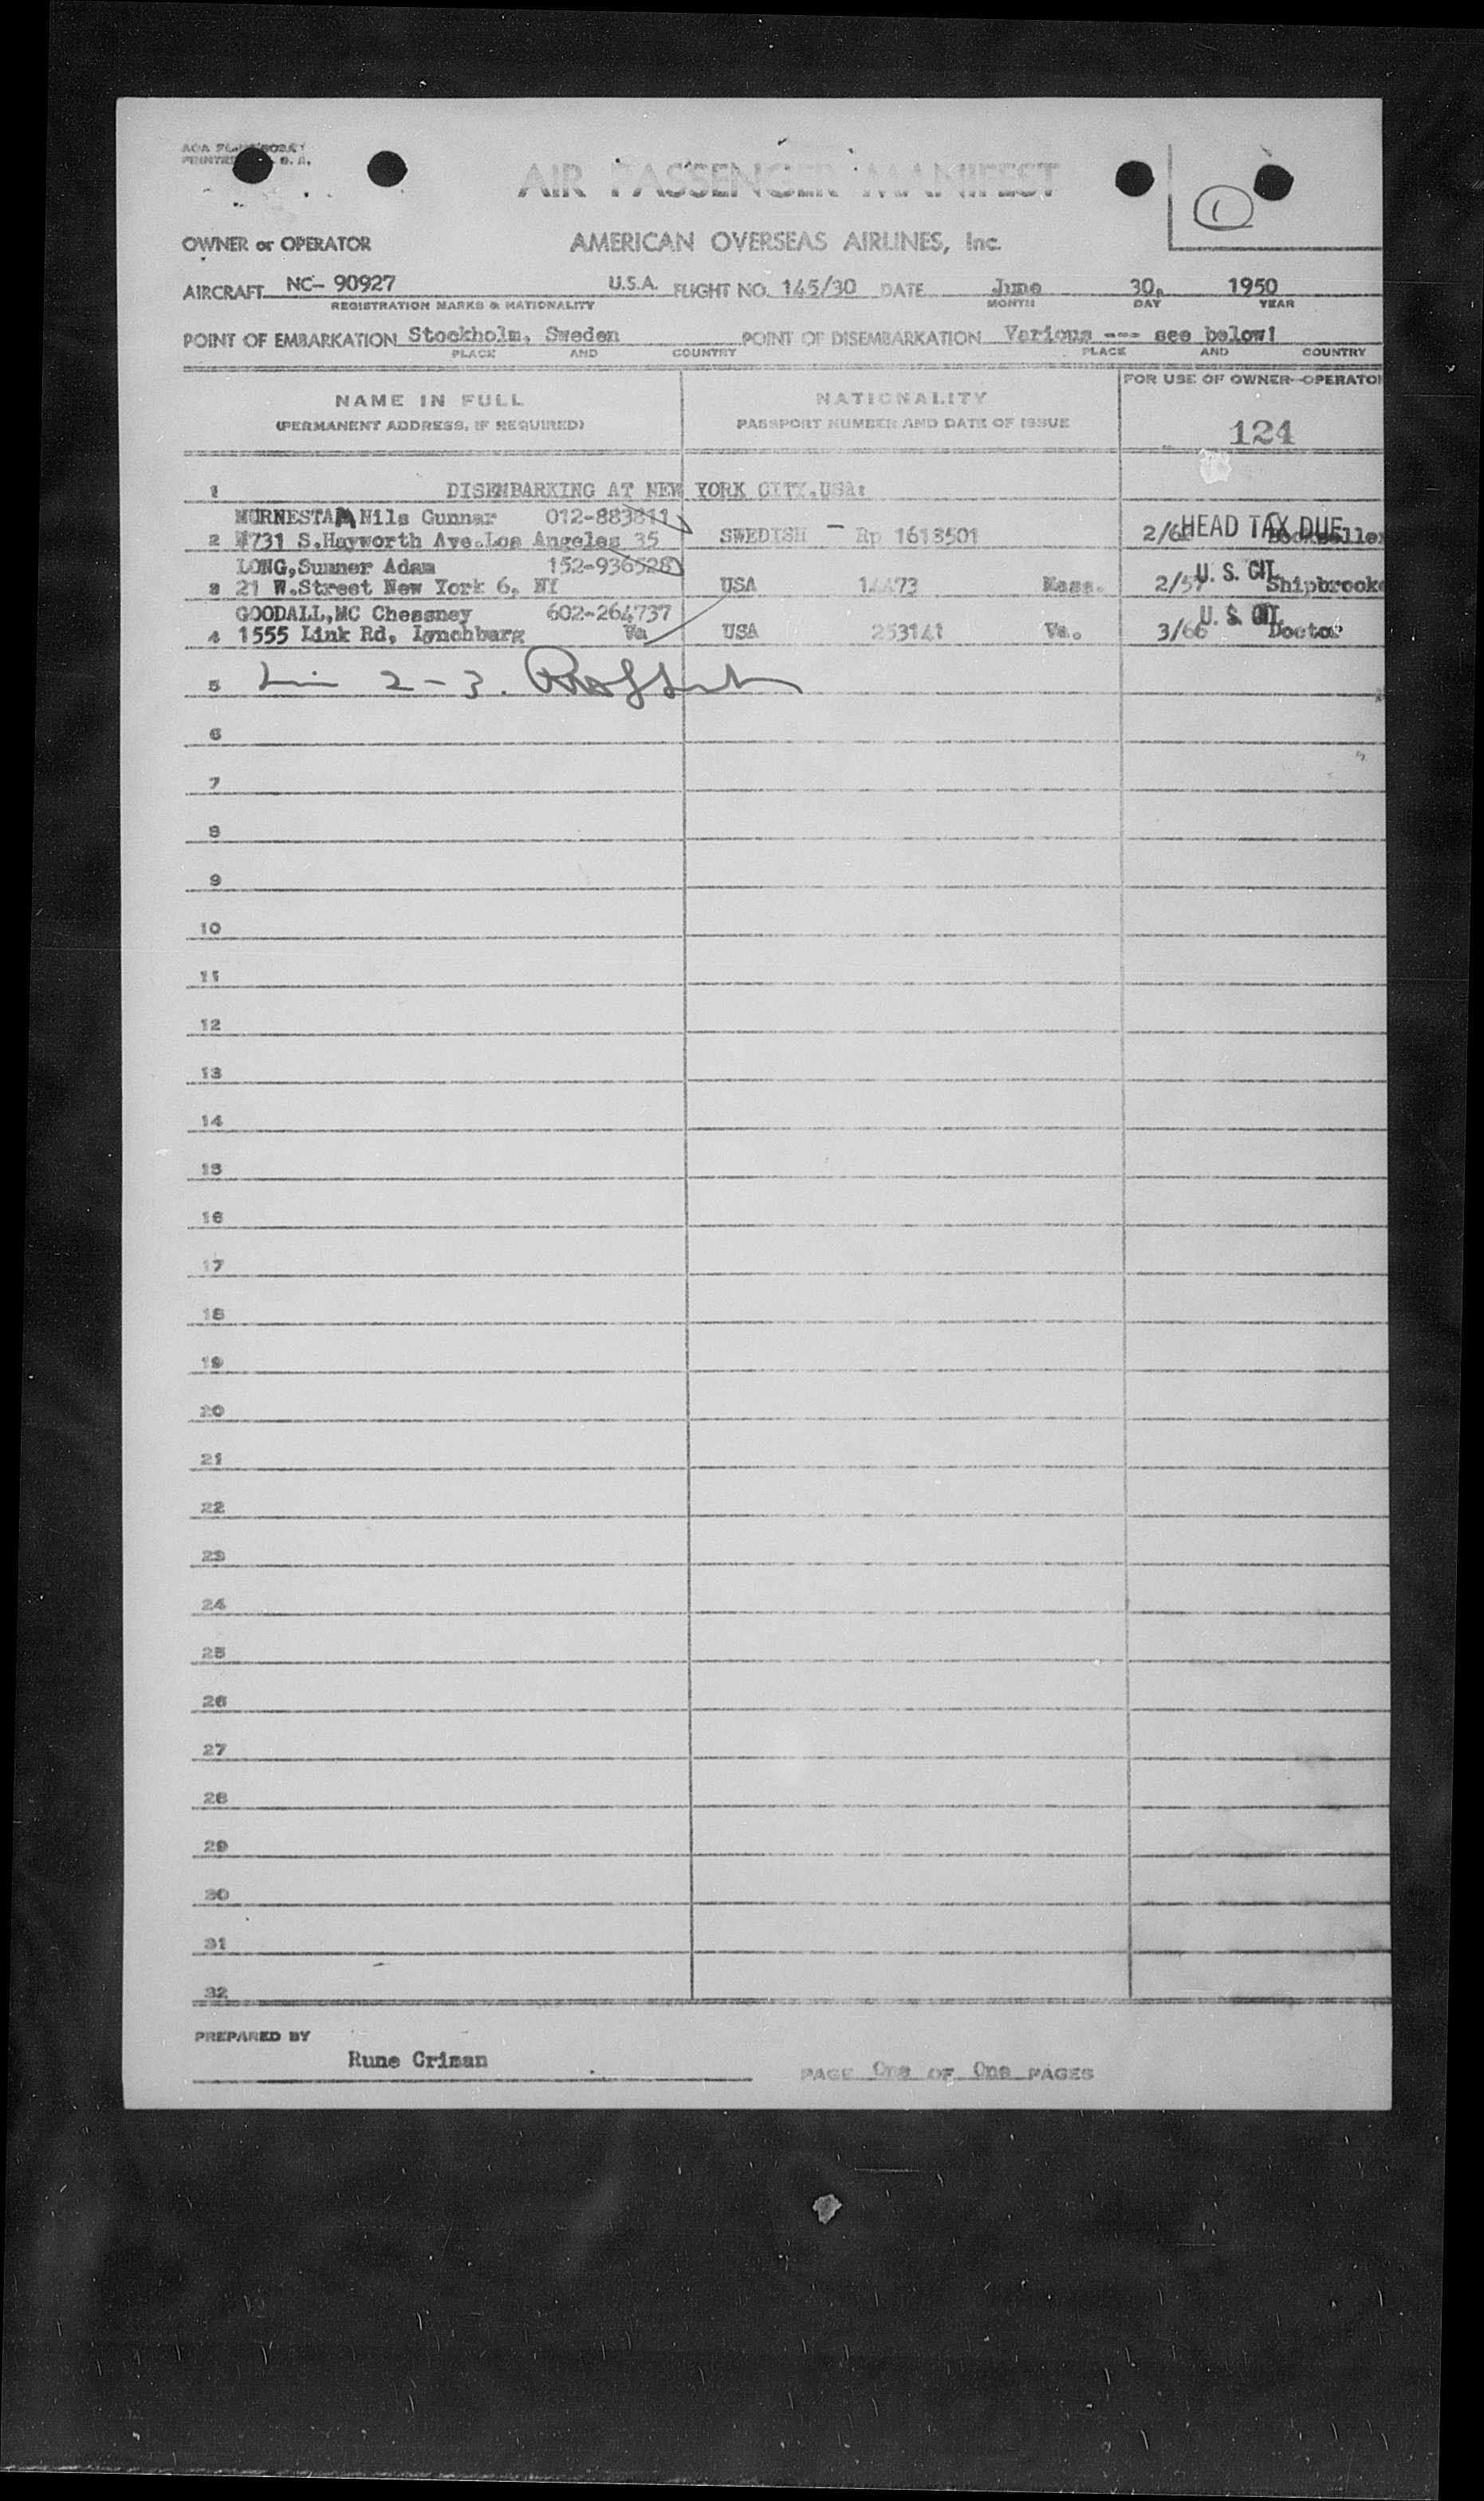 AIR PASSENGER MANIFEST
1
OWNER or OPERATOR AMERICAN OVERSEAS AIRLINES, Inc.
AIRCRAFT NC- 90927 U.S.A. FLIGHT NO. 145/30 DATE June 30, 1950
REGISTRATION MARKS & NATIONALITY MONTH DAY YEAR
POINT OF EMBARKATION Stockholm, Sweden POINT OF DISEMBARKATION Various --- see below!
PLACE AND COUNTRY PLACE AND COUNTRY
NAME IN FULL NATIONALITY FOR USE OF OWNER-OPERATOR
(PERMANENT ADDRESS, IF REQUIRED) PASSPORT NUMBER AND DATE OF ISSUE 124
1 DISEMBARKING AT NEW YORK CITY.USA:
MORNESTAM Nils Gunnar 012-883811
2 1731 S.Hayworth Ave.Los Angeles 35 SWEDISH - Rp 1618501 HEAD TAX DUE
LONG,Sumner Adam 152-936528
3 21 W.Street New York 6, NY USA 14473 Mass. 2/57 U. S. CIT. Shipbrooke
GOODALL,MC Chessney 602-264737
4 1555 Link Rd, Lynchburg Va USA 253141 Va. 3/66 U. S. CIT. Doctor
5 2-3.
6
7
8
9
10
11
12
13
14
15
16
17
18
19
20
21
22
23
24
25
26
27
28
29
30
31
32
PREPARED BY
Rune Criman
PAGE One OF One PAGES